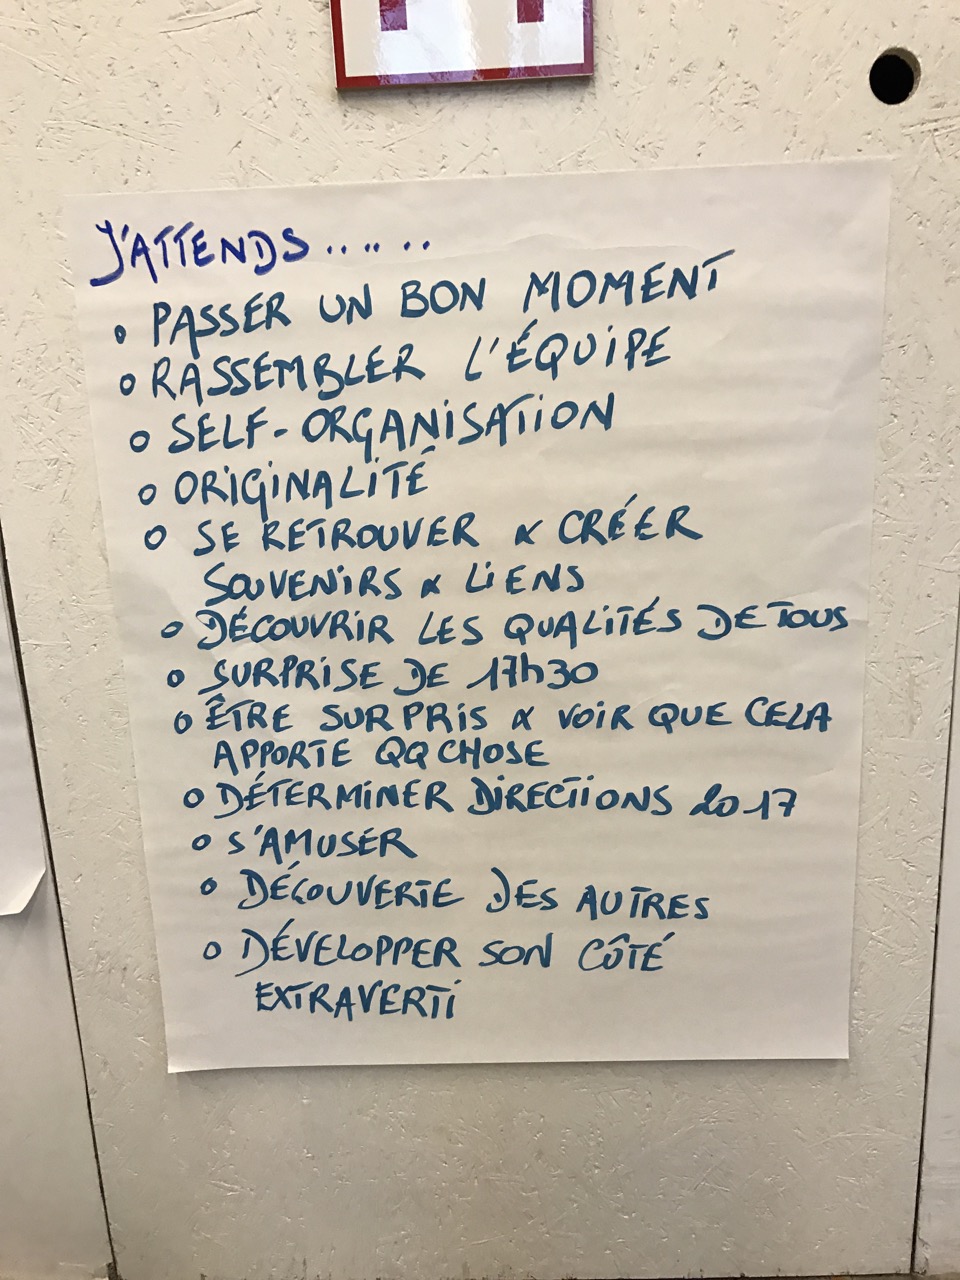 J'ATTENDS......
o PASSER UN BON MOMENT
o RASSEMBLER L'ÉQUIPE
o SELF-ORGANISATION
o ORIGINALITÉ
o SE RETROUVER & CRÉER
SOUVENIRS & LIENS
o DÉCOUVRIR LES QUALITÉS DE TOUS
o SURPRISE DE 17h30
o ÊTRE SURPRIS & VOIR QUE CELA
APPORTE QQCHOSE
o DÉTERMINER DIRECTIONS 2017
o S'AMUSER
o DÉCOUVERTE DES AUTRES
o DÉVELOPPER SON CÔTÉ
EXTRAVERTI